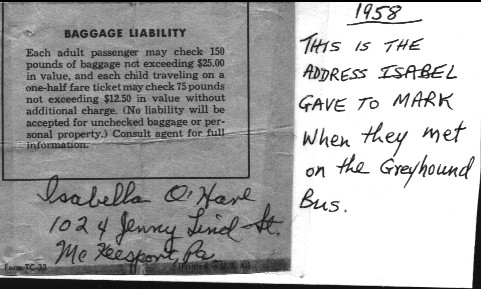 BAGGAGE LIABILITY
Each adult passenger may check 150
pounds of baggage not exceeding $25.00
in value, and each child traveling on a
one-half fare ticket may check 75 pounds
not exceeding $12.50 in value without
additional charge. (No liability will be
accepted for unchecked baggage or per-
sonal property.) Consult agent for full
information.
Isabella O'Hare
1024 Jenny Lind St.
McKeesport, Pa.
Form TC-33
(Printed
1958
THIS IS THE
ADDRESS ISABEL
GAVE TO MARK
When they met
on the Greyhound
Bus.